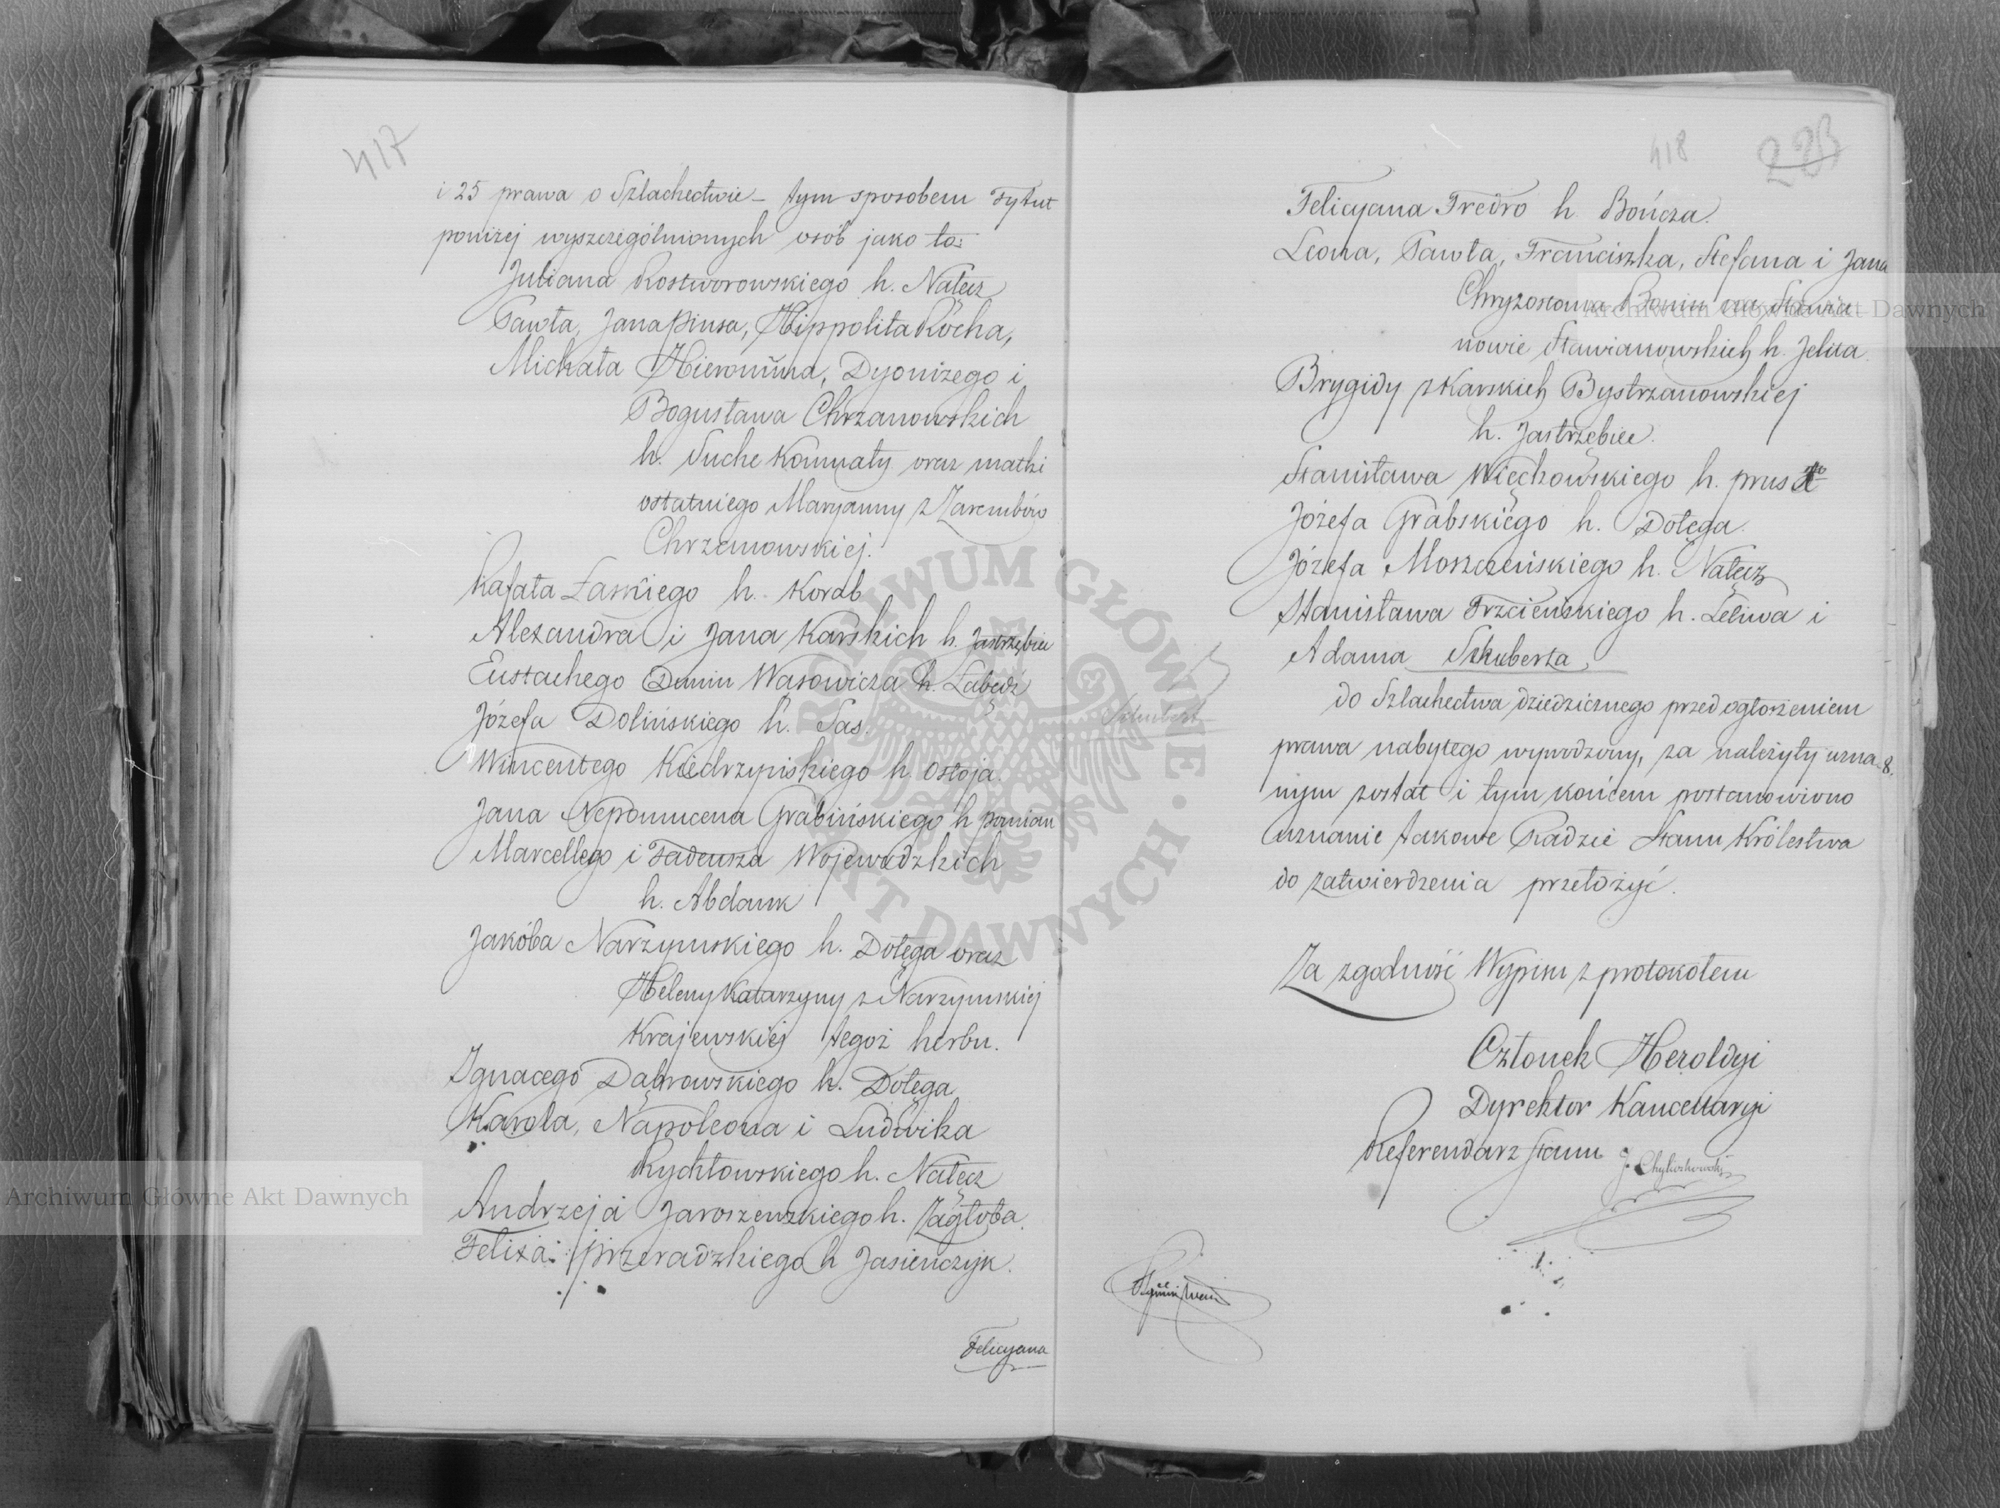 417
i 25 prawa o Szlachectwie – tym sposobem Tytuł
poniżej wyszczególnionych osób jako to:
Juliana Rostworowskiego h. Nałęcz
Pawła, Jana Piusa, Hippolita Rocha,
Michała Hieronima, Dyonizego i
Bogusława Chrzanowskich
h. Suche Komnaty oraz matki
ostatniego Maryanny z Zarembów
Chrzanowskiej.
Rafała Łaskiego h. Korab
Alexandra i Jana Karskich h. Jastrzębiec
Eustachego Dunin Wąsowicza h. Łabędź
Józefa Dolińskiego h. Sas.
Wincentego Kiedrzyńskiego h. Ostoja.
Jana Nepomucena Grabińskiego h pomian
Marcellego i Tadeusza Wojewódzkich
h. Abdank
Jakóba Narzymskiego h. Dołęga oraz
Heleny Katarzyny z Narzymskiej
Krajewskiej tegoż herbu.
Ignacego Dąbrowskiego h. Dołęga
Karola, Napoleona i Ludwika
Rychłowskiego h. Nałęcz
Andrzeja Jaroszewskiego h. Zagłoba.
Felixa Przeradzkiego h Jasieńczyk.
Felicyana
418
223
Felicyana Fredro h. Bończa.
Leona, Pawła, Franciszka, Stefana i Jana
Chryzostoma Bonin na Sławia-
nowie Sławianowskich h. Jelita.
Brygidy z Karskich Bystrzanowskiej
h. Jastrzębiec.
Stanisława Więckowskiego h. prus
Józefa Grabskiego h. Dołęga.
Józefa Moszczeńskiego h. Nałęcz
Stanisława Trzcińskiego h. Leliwa i
Adama Szuberta,
Schubert
do Szlachectwa dziedzicznego przed ogłoszeniem
prawa nabytego wywodzony, za należyty uzna-
nym został i tym końcem postanowiono
uznanie takowe Radzie Stanu Królestwa
do zatwierdzenia przełożyć.
Za zgodność Wypisu z protokołem
Członek Heroldyi
Dyrektor Kancellaryi
Referendarz Stanu J. Chyliczkowski
Archiwum Główne Akt Dawnych
Archiwum Główne Akt Dawnych
ARCHIWUM GŁÓWNE · AKT DAWNYCH ·